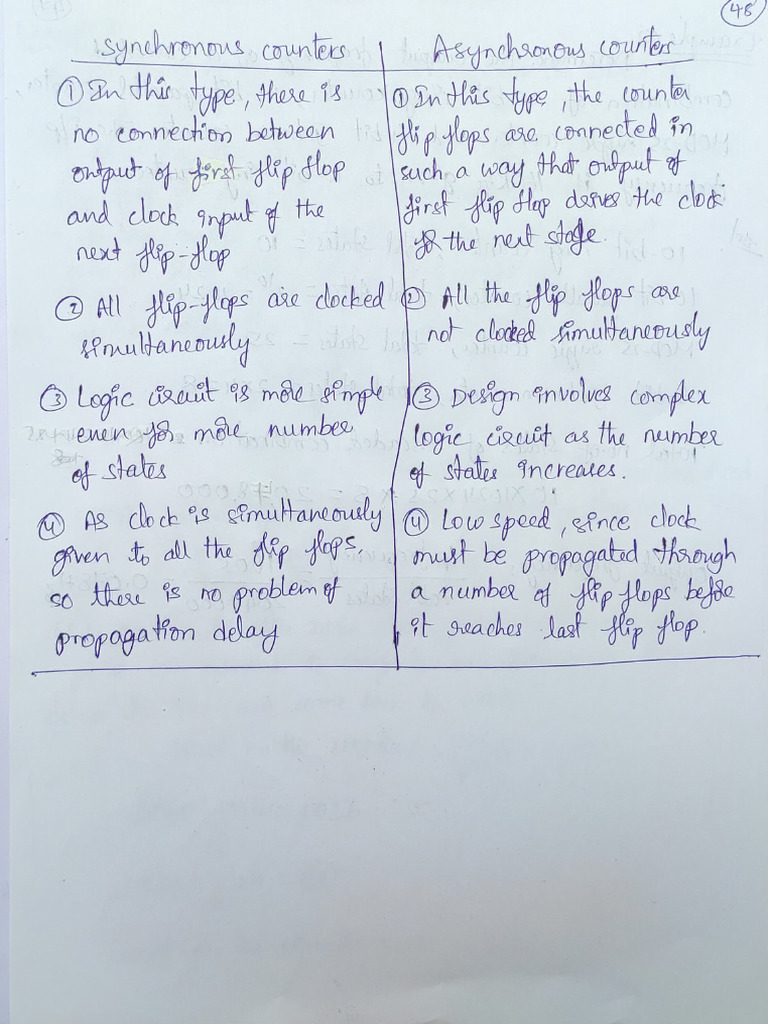 48
synchronous counters
① In this type, there is
no connection between
output of first flip flop
and clock input of the
next flip-flop
② All flip-flops are clocked
simultaneously
③ Logic circuit is more simple
even for more number
of states
④ As clock is simultaneously
given to all the flip flops.
so there is no problem of
propagation delay
Asynchronous counters
① In this type, the counter
flip flops are connected in
such a way that output of
first flip flop derives the clock
for the next stage.
② All the flip flops are
not clocked simultaneously
③ Design involves complex
logic circuit as the number
of states increases.
④ Low speed, since clock
must be propagated through
a number of flip flops before
it reaches last flip flop.